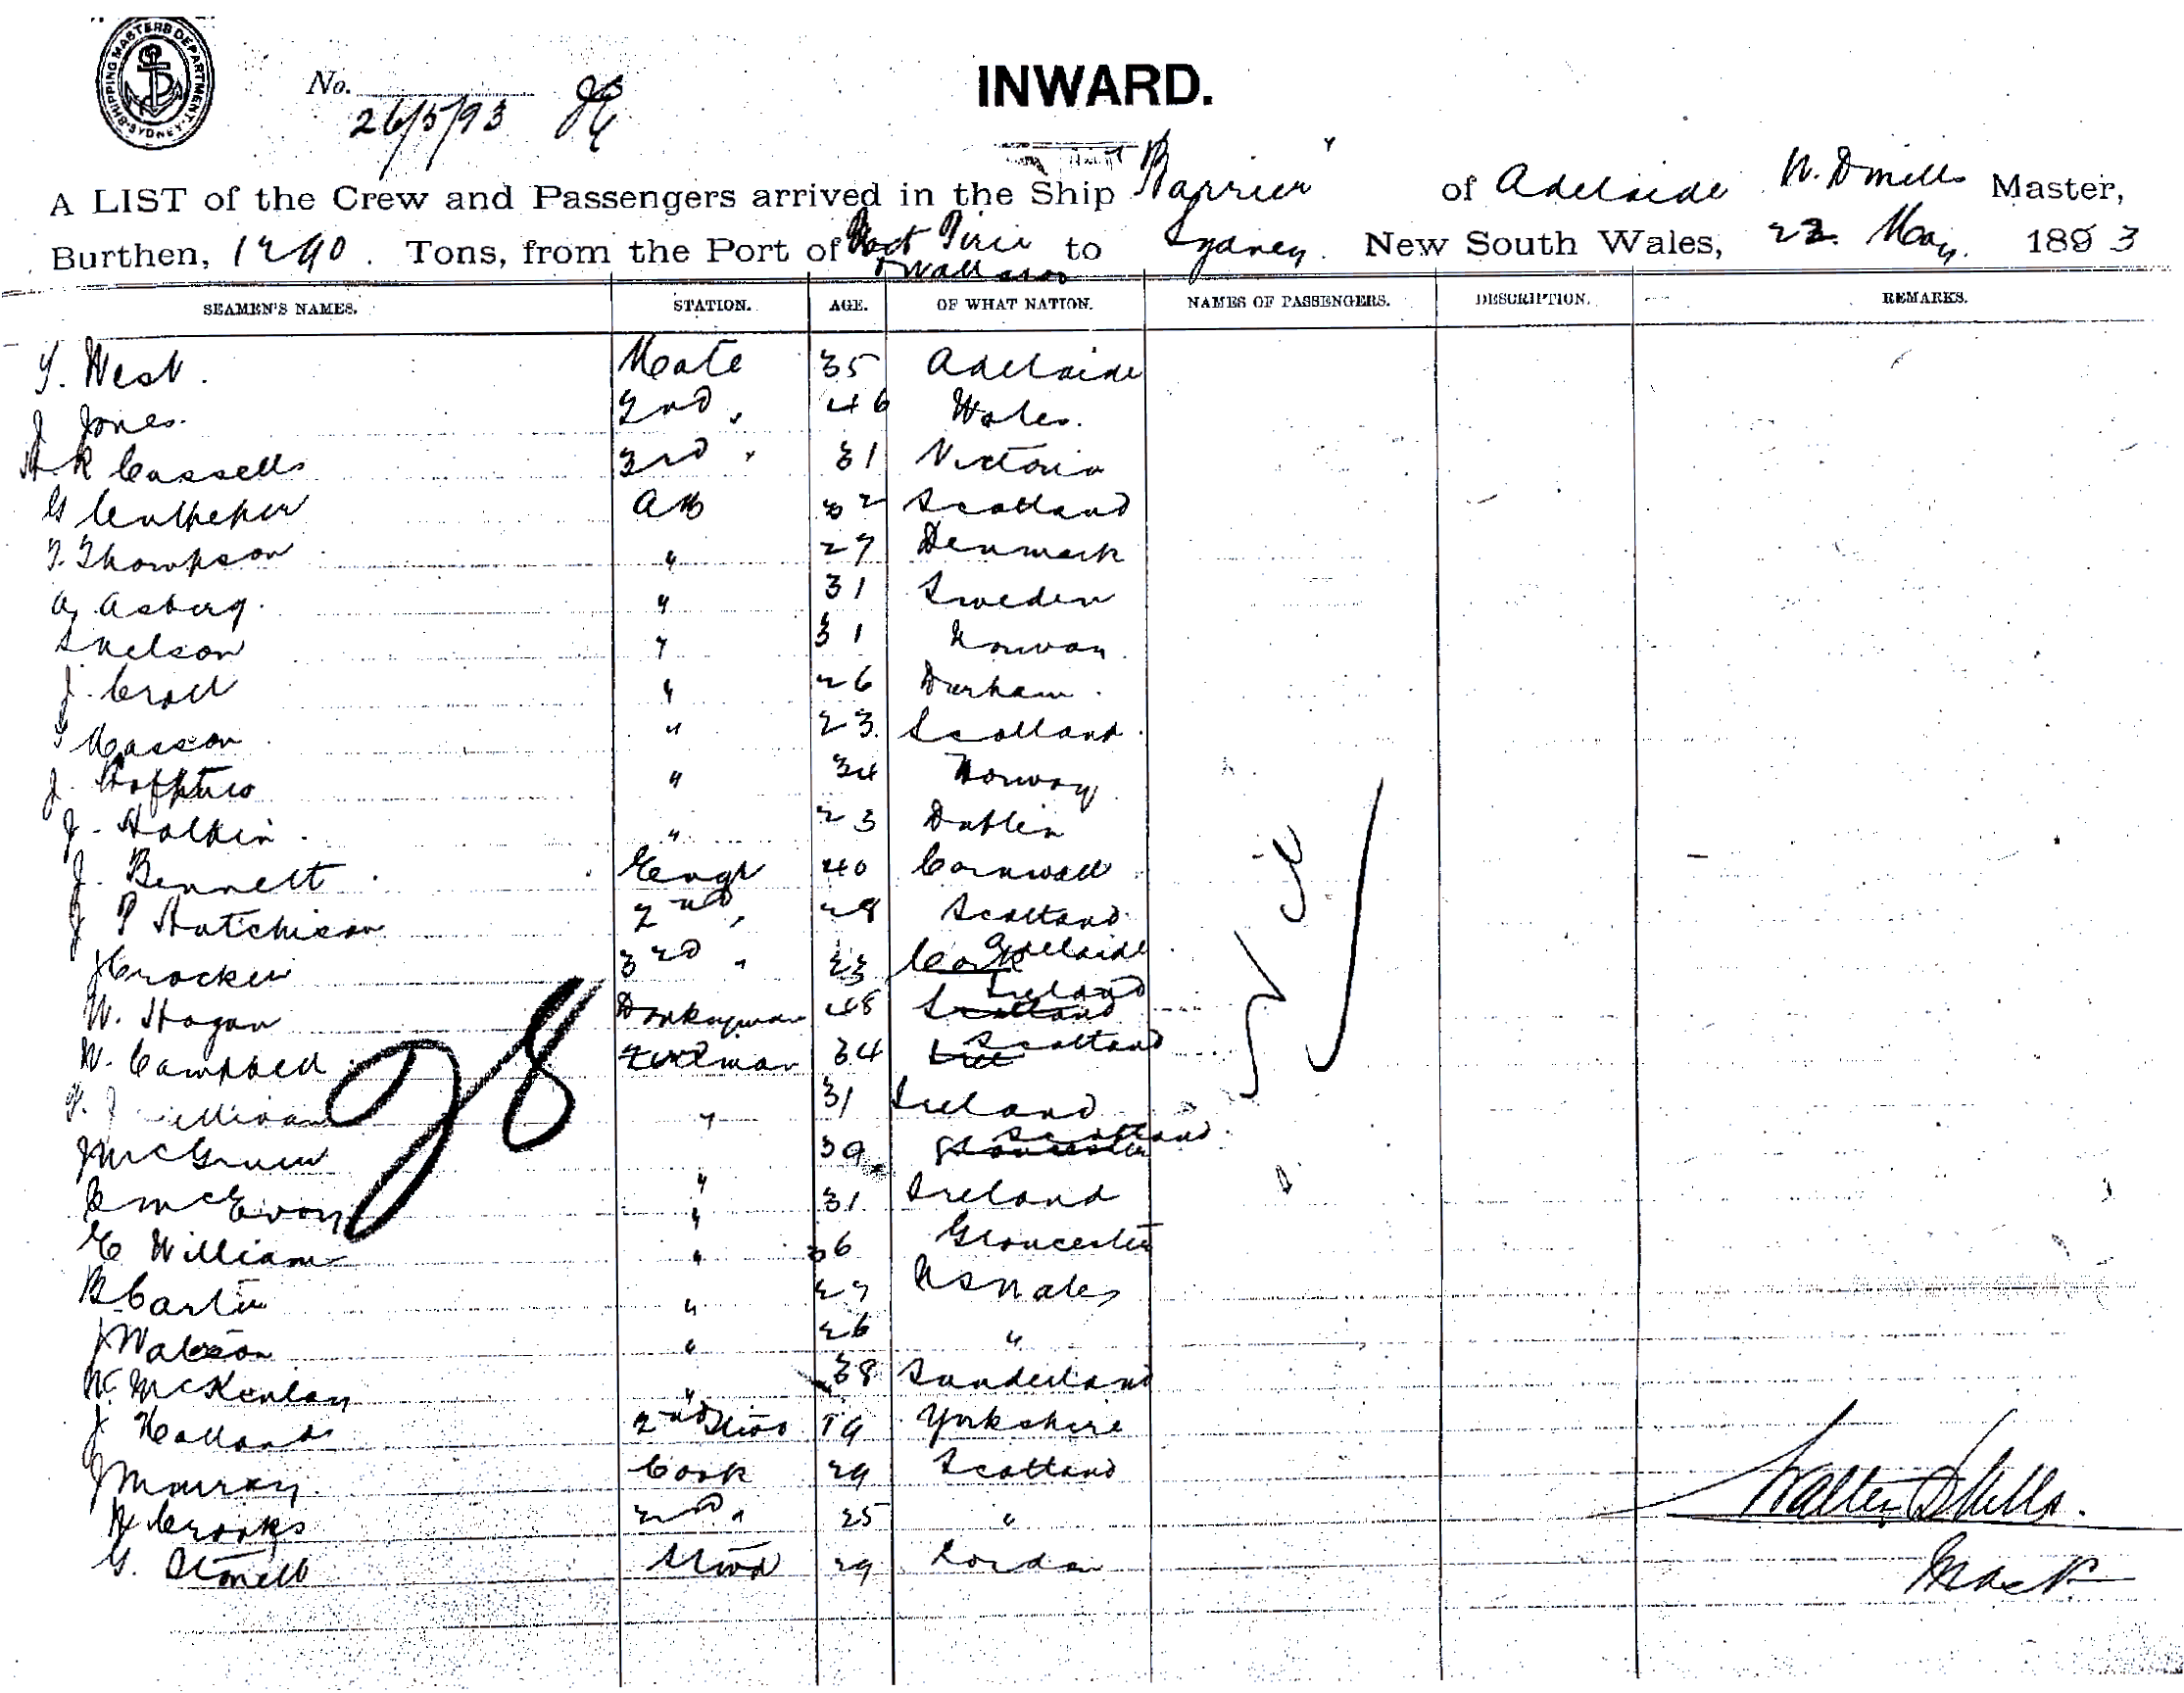 SHIPPING MASTERS DEPARTMENT SYDNEY
No.
26/5/93
INWARD.
A LIST of the Crew and Passengers arrived in the Ship "Barrier" of Adelaide W. D Mills Master,
Burthen, 1290. Tons, from the Port of Port Pirie to Sydney. New South Wales, 22 May. 1893
& Wallaroo
SEAMEN'S NAMES. STATION. AGE. OF WHAT NATION. NAMES OF PASSENGERS. DESCRIPTION. REMARKS.
West. Mate 35 Adelaide
J Jones. 2nd " 46 Wales.
R Cassells 3rd " 31 Victoria
AB 32 Scotland
T. Thompson " 27 Denmark
A. Asberg. " 31 Sweden
Nelson " 31 Norway
J. Croll " 26 Durham.
Masson " 23. Scotland.
J. " 34 Norway
J. " 23 Dublin
J. Bennett Engr 40 Cornwall
J P Hutchison 2nd " 28 Scotland
J Crocker 3rd " 33 Cork Adelaide
W. Hogan Donkeyman 48 Scotland Ireland
W. Campbell Fireman 34 Scotland
" 31 Ireland
J McGruer " 39 Gloucester Scotland
McEvoy " 31. Ireland
E William " 36 Gloucester
B Carter " 27 N S Wales
J Watson " 26 "
W. McKenlay " 38 Sunderland
J. Hollands 2nd Stwd 19 Yorkshire
J Murray. Cook 29 Scotland
H Crooks 2nd " 25 "
G. Stowell Stwd 29 London
Walter D Mills.
Mast